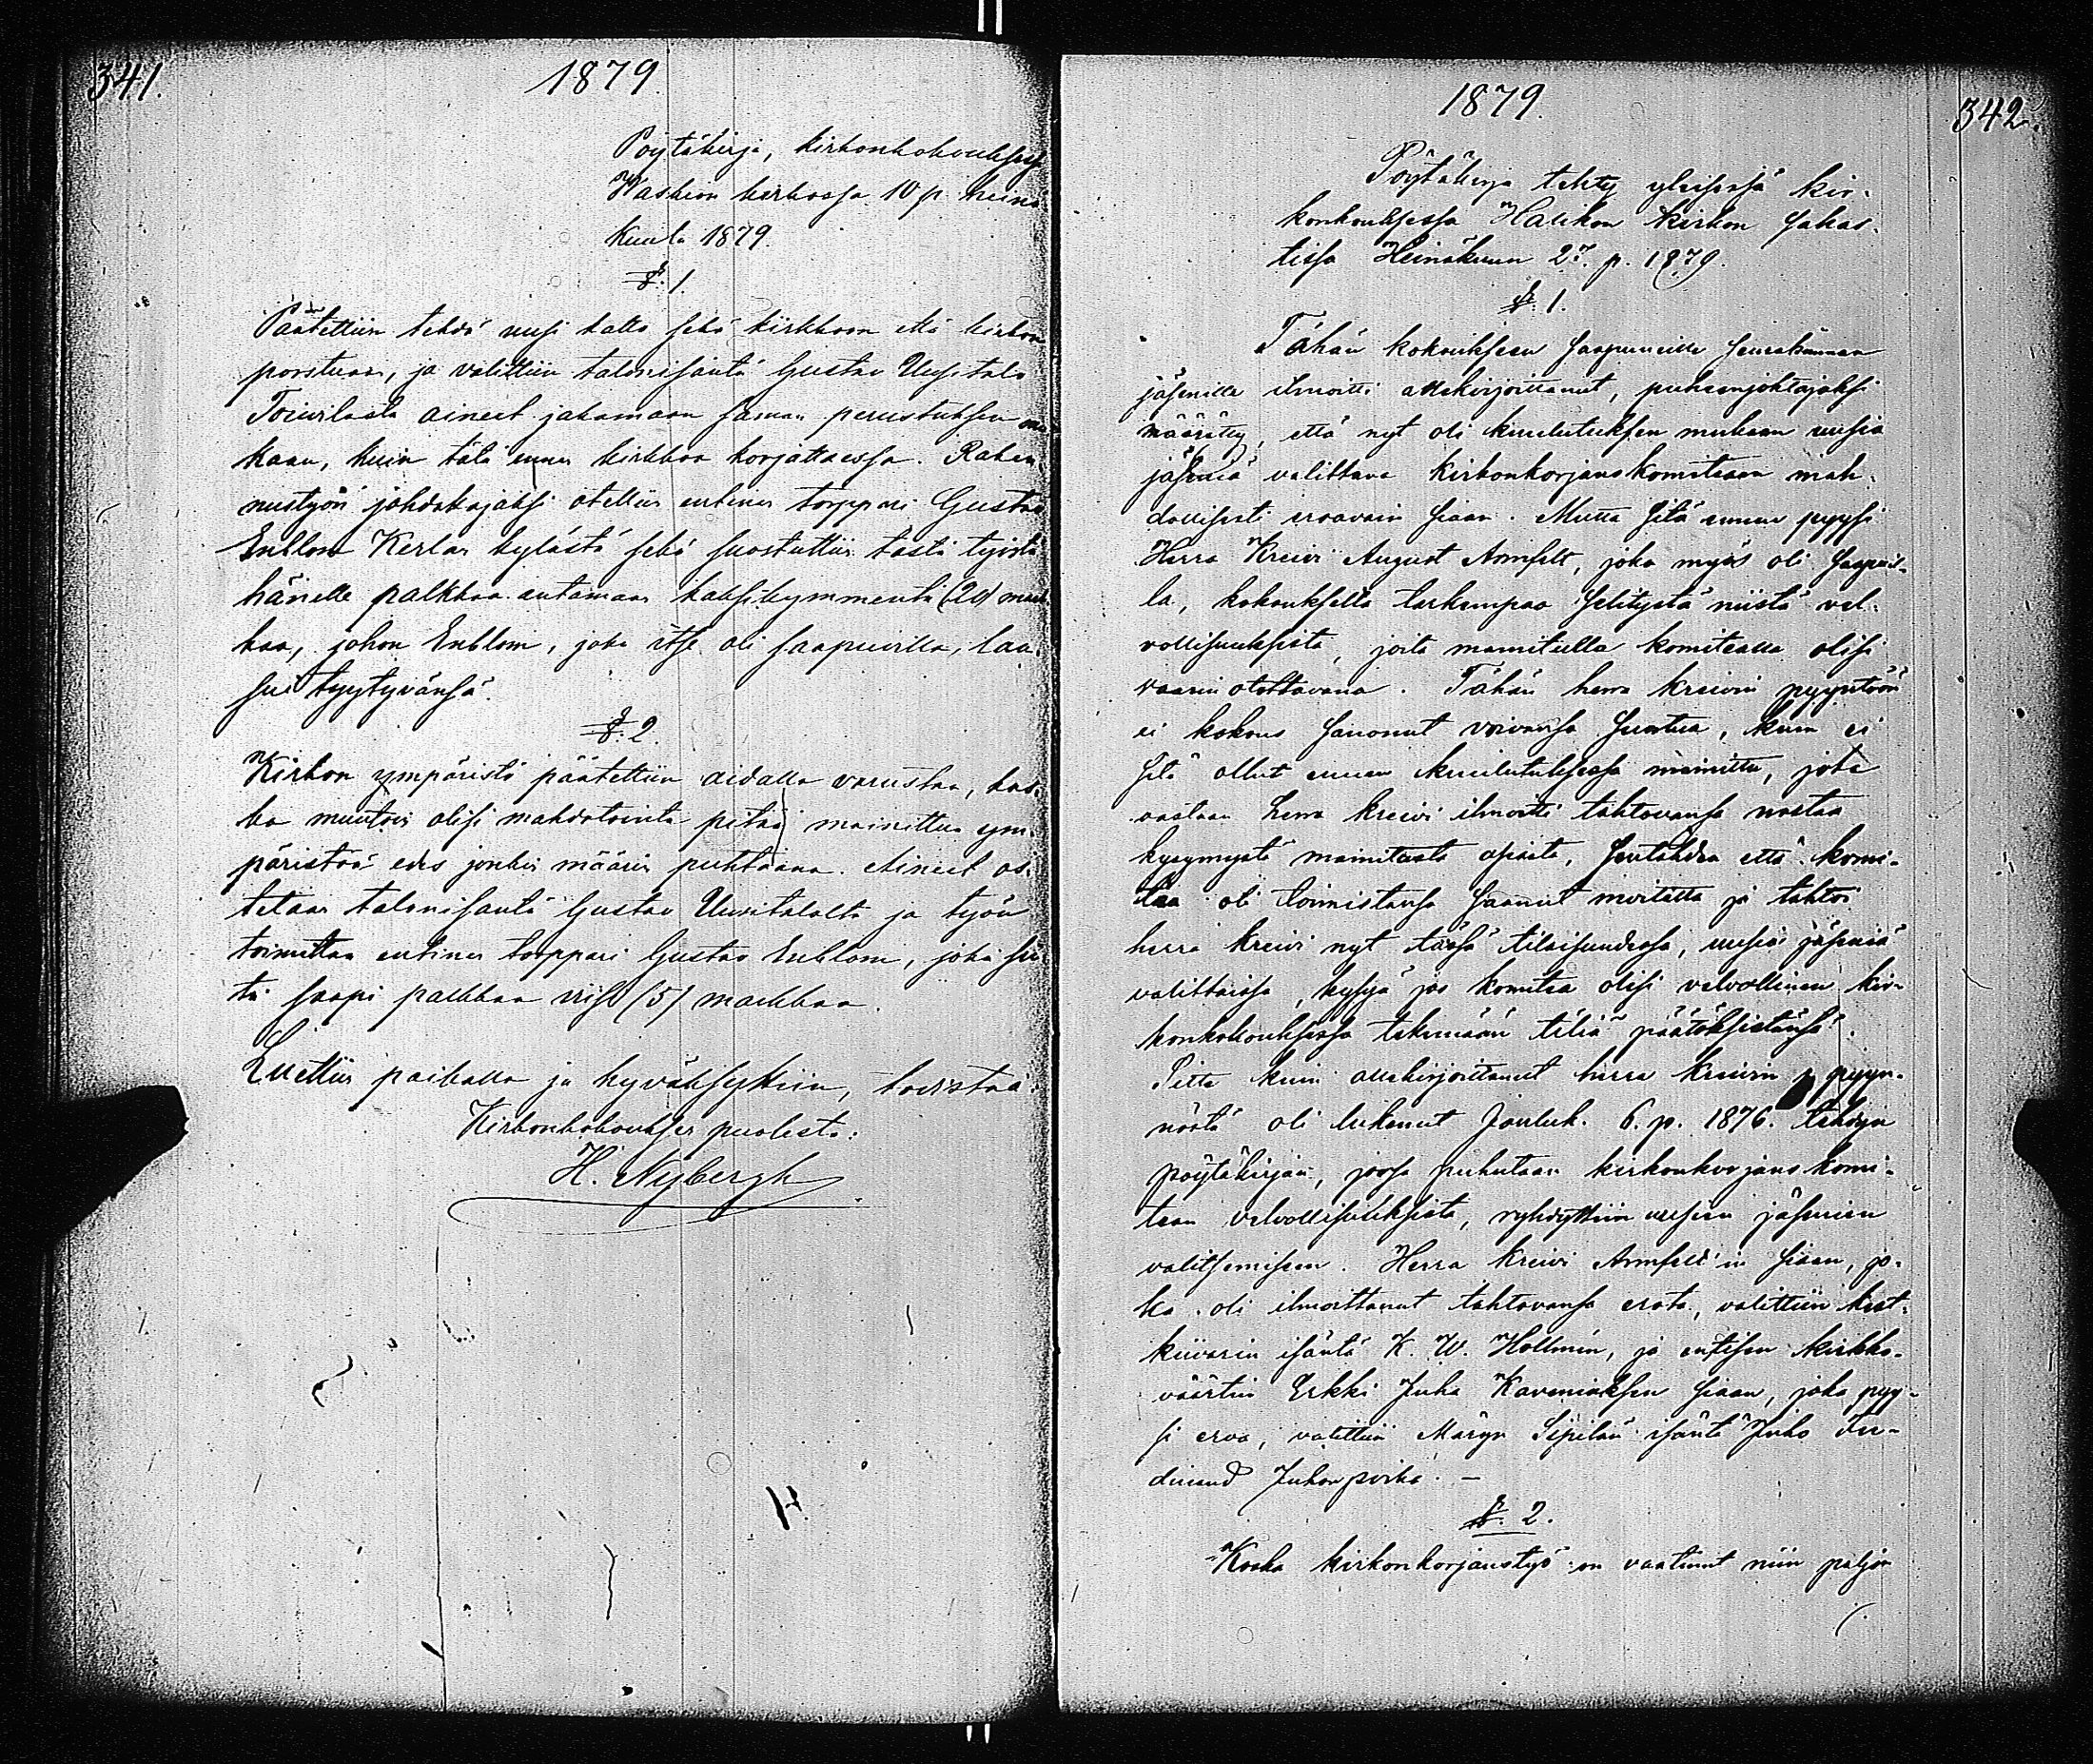 341.
1879.
Pöytäkirja, kirkonkokouksessa
Waskion kirkossa 10 p. heinä
kuuta 1879.
§. 1.
Päätettiin tehdä uusi katto sekä kirkkoon että kirkon
porstuaan, ja valittiin talonisäntä Gustav Uusitalo
Toivilasta aineet jakamaan saman perustuksen mu
kaan, kuin tätä ennen kirkkoa korjattaessa. Raken
nustyön johdattajaksi otettiin entinen torppari Gustav
Enblom Kerlan kylästä sekä suostuttiin tästä työstä
hänelle palkkaa antamaan kaksikymmentä (20) mark
kaa, johon Enblom, joka itse oli saapuvilla, lau
sui tyytyvänsä.
§. 2.
Kirkon ympäristö päätettiin aidalla varustaa, kos
ka muutoin olisi mahdotointa pitää mainittua ym
päristöä edes jonkin määrin puhtaana. Aineet os
tetaan talonisäntä Gustav Uusitalolta ja työn
toimittaa entinen torppari Gustav Enblom, joka sii
tä saapi palkkaa viisi (5) markkaa.
Luettiin paikalla ja hyväksyttiin, todistaa:
Kirkonkokouksen puolesta:
H. Nybergh
1879.
342.
Pöytäkirja tehty yleisessä kir-
konkouksessa Halikon kirkon sakas-
tissa Heinäkuun 27. p. 1879.
§. 1.
Tähän kokoukseen saapuneille seurakunnan
jäsenille ilmoitti allekirjoittanut, puheenjohtajaksi
määrätty, että nyt oli kuulutuksen mukaan uusia
jäseniä valittava kirkonkorjauskomiteaan mah-
dollisesti eroavain siaan. Mutta sitä ennen pyysi
Herra Kreivi August Armfelt, joka myös oli saapuvil-
la, kokoukselta tarkempaa selitystä niistä vel-
vollisuuksista, joita mainitulla komitealla olisi
vaarin otettavana. Tähän herra kreivin pyyntöön
ei kokous sanonut voivansa suostua, kuin ei
sitä ollut ennen kuulutuksessa mainittu, jota
vastaan herra kreivi ilmoitti tahtovansa nostaa
kysymystä mainitusta asiasta, sentähden että komi-
tea oli toimistansa saanut moitetta ja tahtoi
herra kreivi nyt tässä tilaisuudessa, uusia jäseniä
valittaissa, kysyä jos komitea olisi velvollinen kir-
konkokouksessa tekemään tiliä päätöksistänsä.
Sitte kuin allekirjoittanut herra kreivin pyyn-
nöstä oli lukenut Jouluk. 6. p. 1876. tehdyn
pöytäkirjan, jossa puhutaan kirkonkorjaus komi-
tean velvollisuuksista, ryhdyttiin uusien jäsenien
valitsemiseen. Herra kreivi Armfelt'in siaan, jo-
ka oli ilmoittanut tahtovansa erota, valittiin
kiivarin isäntä K. W. Hollmén, ja entisen kirkko-
väärtin Erkki Juha Kaveniuksen siaan, joka pyy-
si eroa, valittiin Märyn Sipilän isäntä Juho Fer-
dinand Juhanpoika. —
§. 2.
Koska kirkonkorjaustyö on vaatinut niin paljon